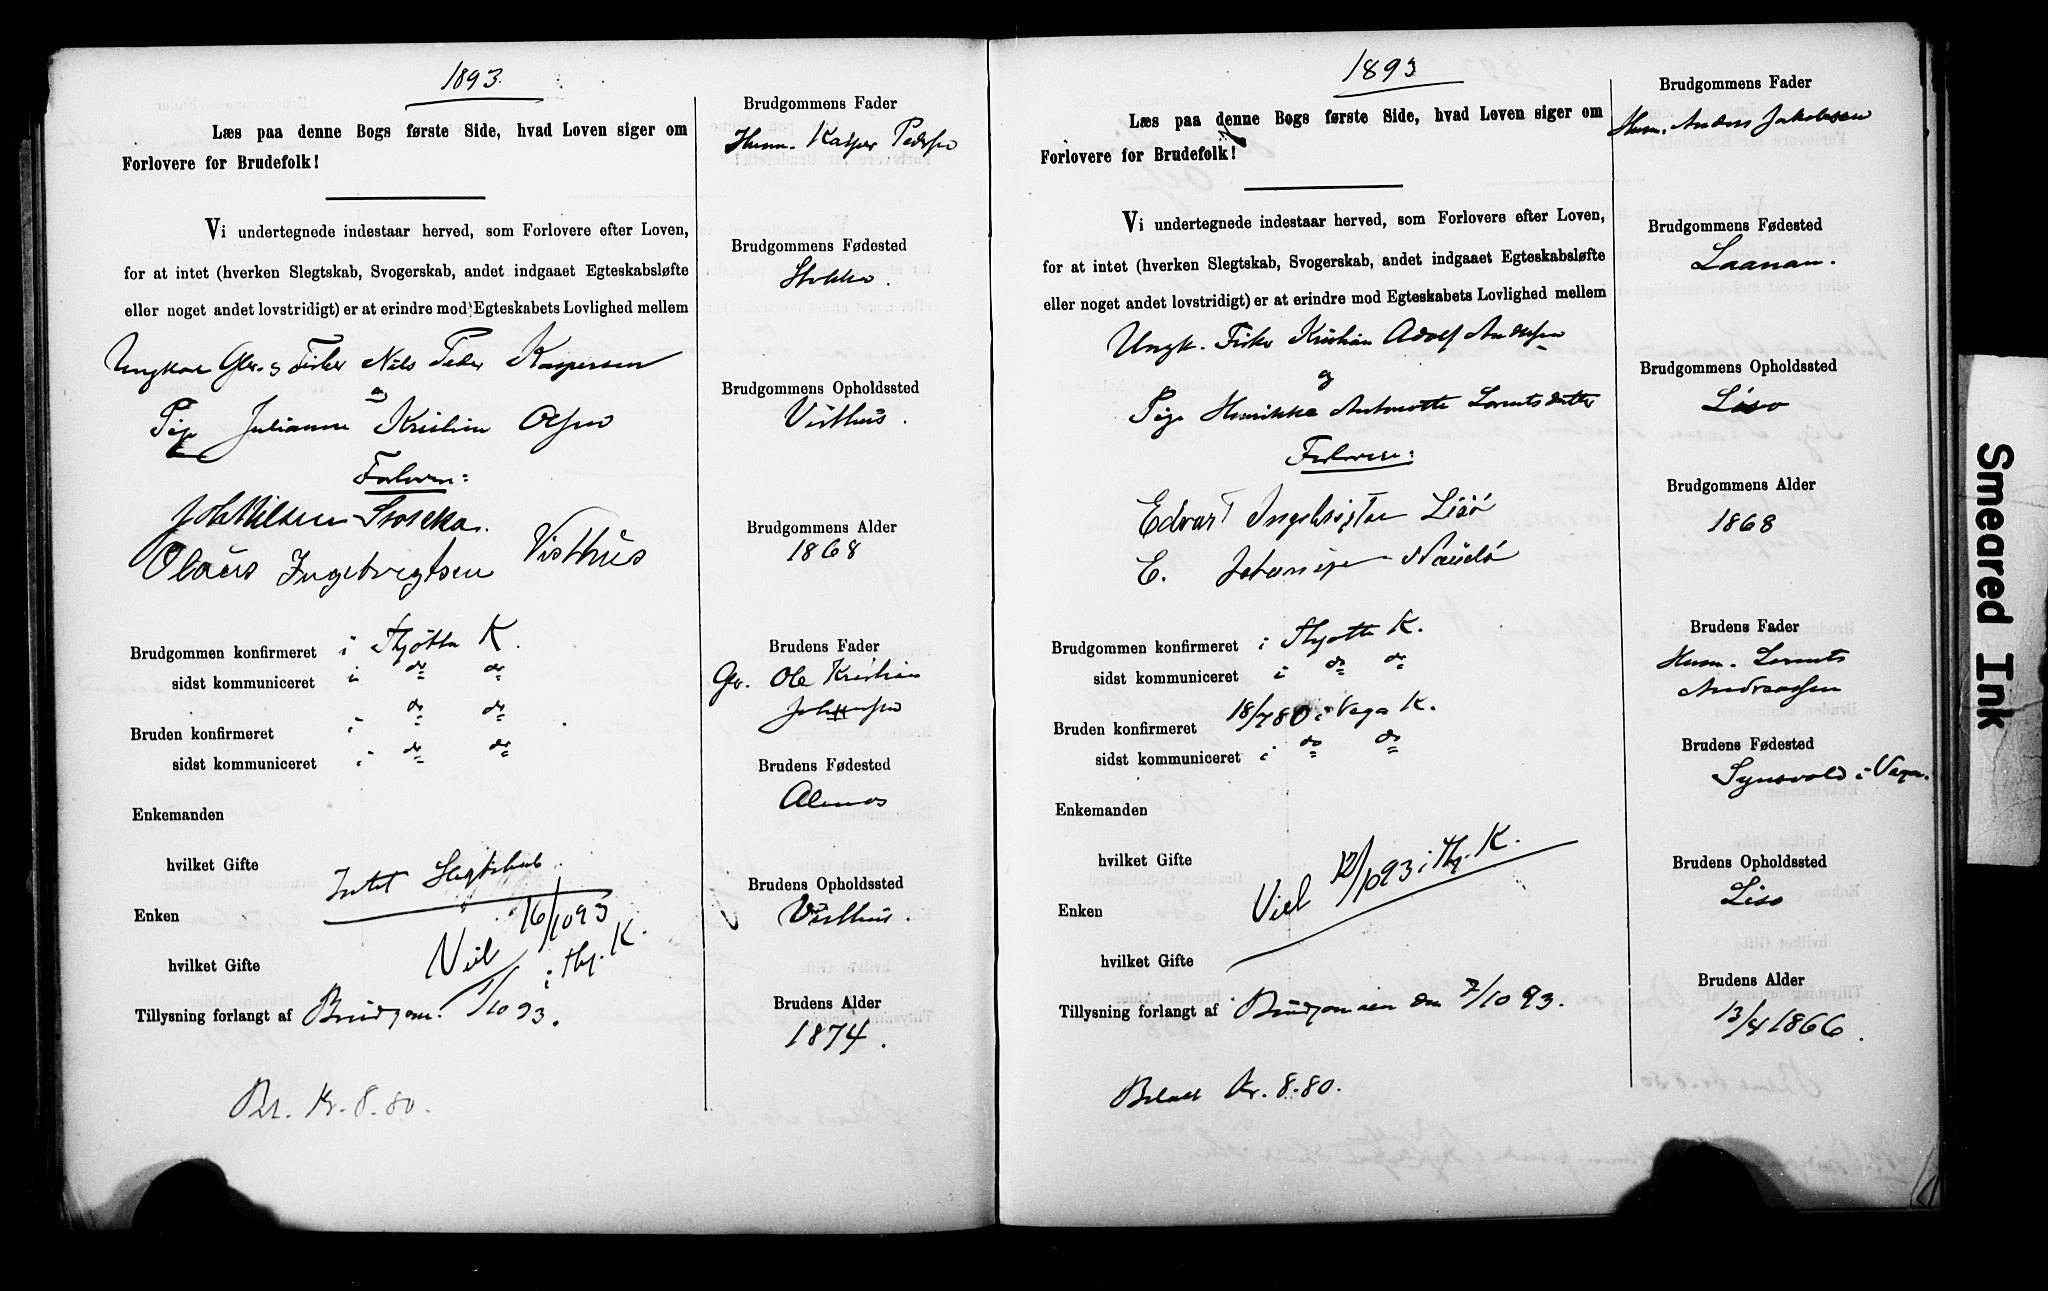 1893.
Læs paa denne Bogs første Side, hvad Loven siger om
Forlovere for Brudefolk!
Vi undertegnede indestaar herved, som Forlovere efter Loven,
for at intet (hverken Slegtskab, Svogerskab, andet indgaaet Egteskabsløfte
eller noget andet lovstridigt) er at erindre mod Egteskabets Lovlighed mellem
Ungkar Gbr. og Fisker Nils Peder Kaspersen
og
Pige Julianne Kristine Olsen
Forlovere:
Joh Nilsen Stokka.
Olaus Ingebregtsen Visthus
Brudgommen konfirmeret i Thjøtta K.
sidst kommuniceret i do do
Bruden konfirmeret i do do
sidst kommuniceret i do do
Enkemanden
hvilket Gifte
Intet Slegtskab.
Enken
Viel 16/10 93 i Thj. K.
hvilket Gifte
Tillysning forlangt af Brudgom. 1/10 93.
Bet. Kr. 8.80.
Brudgommens Fader
Husm. Kasper Pedersen
Brudgommens Fødested
Stokka.
Brudgommens Opholdssted
Visthus.
Brudgommens Alder
1868
Brudens Fader
Gbr. Ole Kristian
Johansen
Brudens Fødested
Alenæs
Brudens Opholdssted
Visthus.
Brudens Alder
1874.
1893
Læs paa denne Bogs første Side, hvad Loven siger om
Forlovere for Brudefolk!
Vi undertegnede indestaar herved, som Forlovere efter Loven,
for at intet (hverken Slegtskab, Svogerskab, andet indgaaet Egteskabsløfte
eller noget andet lovstridigt) er at erindre mod Egteskabets Lovlighed mellem
Ungk. Fisker Kristian Adolf Andersen
og
Pige Henrikke Antonette Lorntsdatter
Forlovere:
Edvart Ingebrigtsen Lisø
E. Johansen
Brudgommen konfirmeret i Thjøtta K.
sidst kommuniceret i do do
Bruden konfirmeret 18/7 80 i Vega K.
sidst kommuniceret i do do
Enkemanden
hvilket Gifte
Viel 12/10 93 i Thj. K.
Enken
hvilket Gifte
Tillysning forlangt af Brudgommen den 7/10 93.
Betalt Kr. 8.80.
Brudgommens Fader
Husm. Anders Jakobsen
Brudgommens Fødested
Laanan.
Brudgommens Opholdssted
Lisø
Brudgommens Alder
1868
Brudens Fader
Husm. Lornts
Andreassen
Brudens Fødested
Synsvold i Vega.
Brudens Opholdssted
Lisø
Brudens Alder
13/4 1866.
Smeared Ink